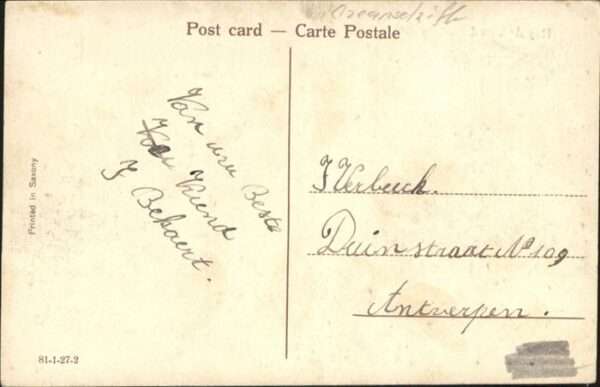 Post card — Carte Postale
Van uw Beste
Vriend
J Bekaert.
Printed in Saxony
J Verbeeck.
Duinstraat No 109
Antwerpen.
81-1-27-2